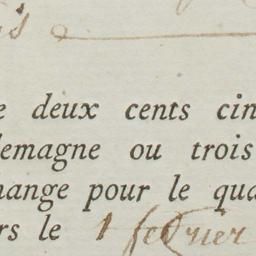 is
e deux cents cin
lemagne ou trois
hange pour le qua
rs le 1 fevrier